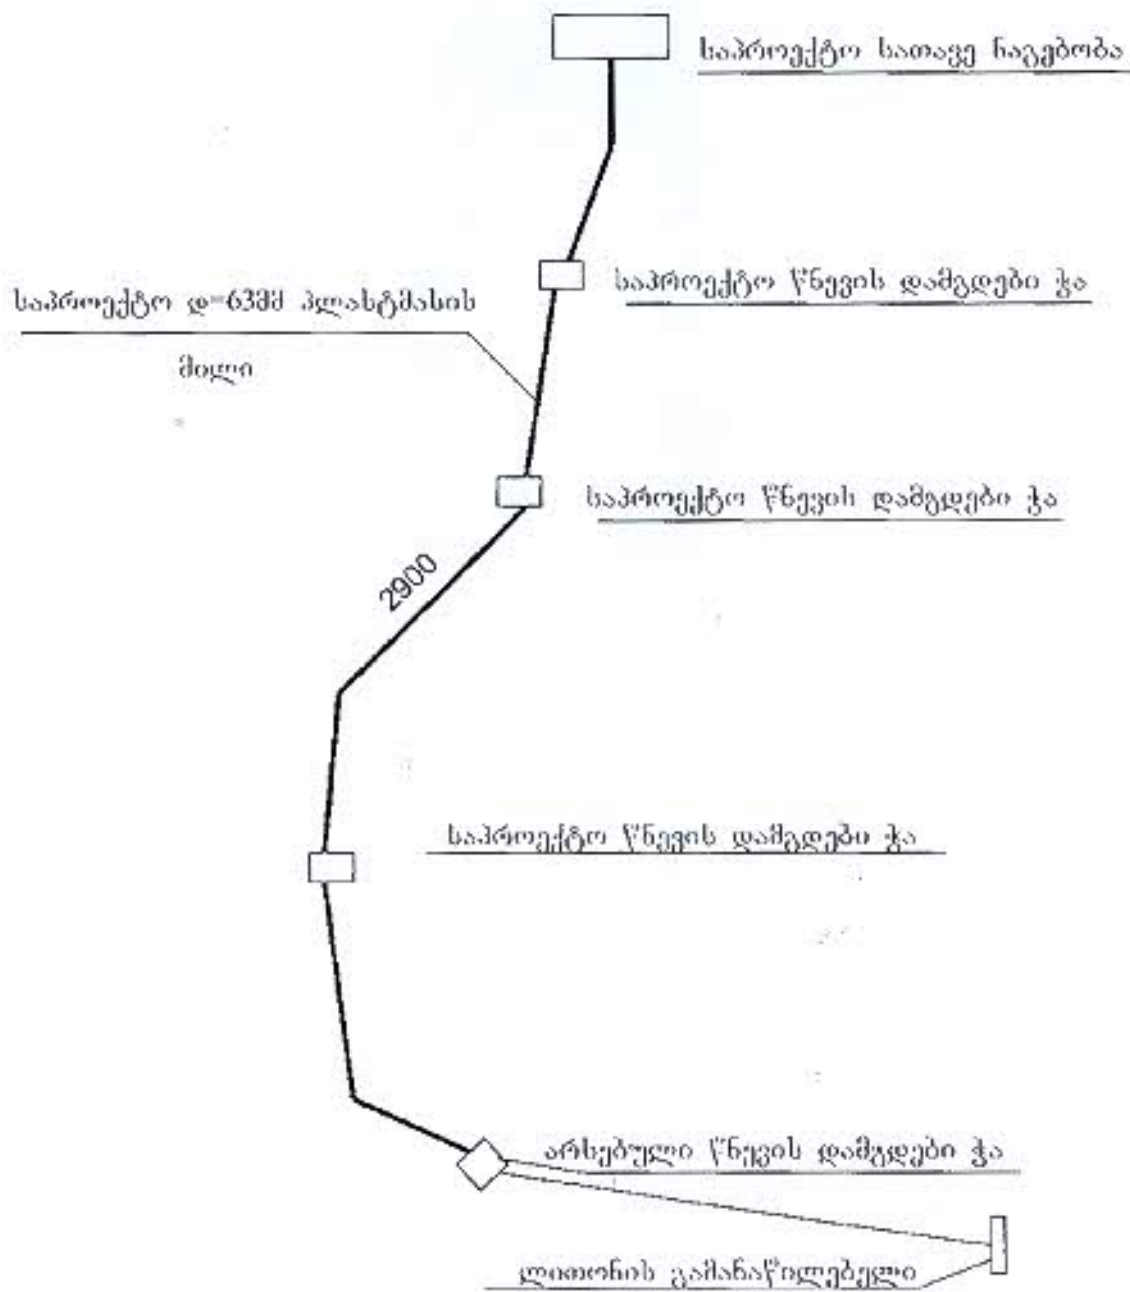 საპროექტო სათავე ნაგებობა
საპროექტო წნევის დამგდები ჭა
საპროექტო დ=63მმ პლასტმასის
მილი
საპროექტო წნევის დამგდები ჭა
2900
საპროექტო წნევის დამგდები ჭა
არსებული წნევის დამგდები ჭა
ლითონის გამანაწილებელი